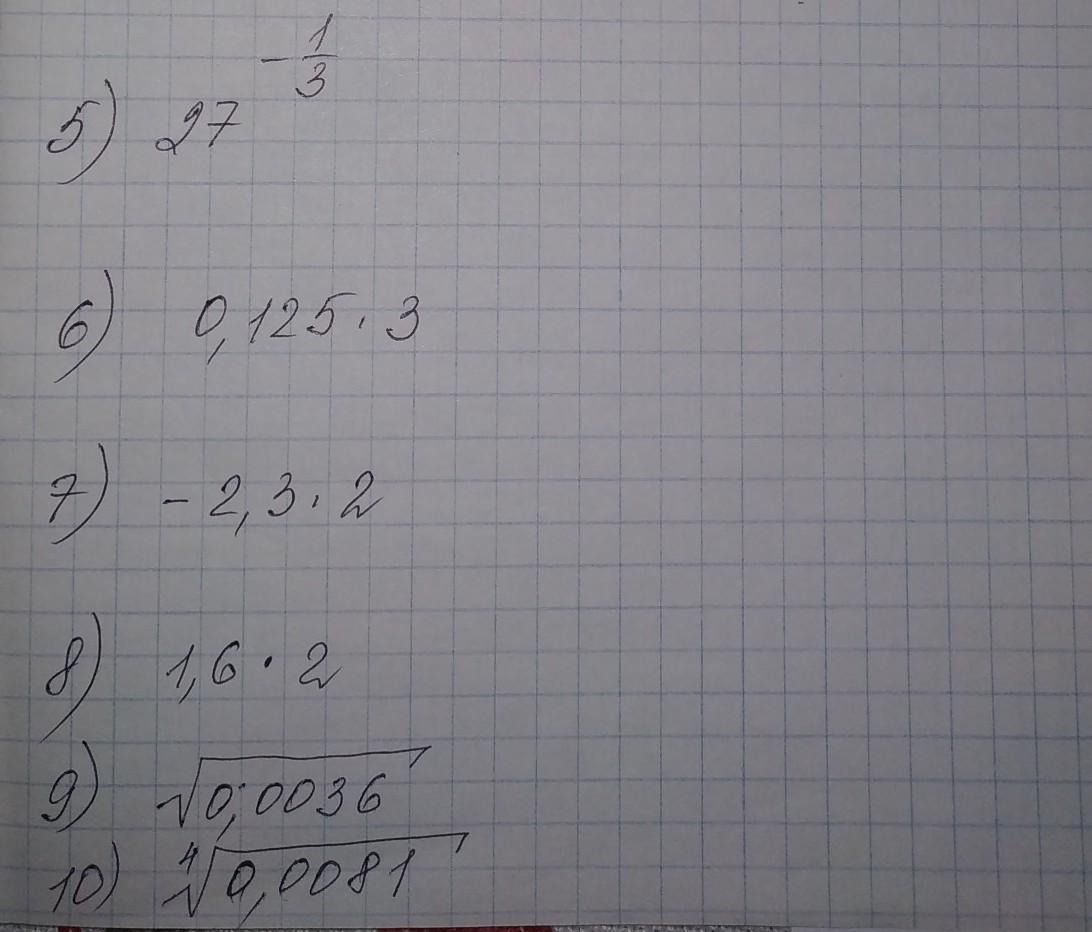 5) 27^(-1/3)
6) 0,125 · 3
7) - 2,3 · 2
8) 1,6 · 2
9) √0,0036
10) ⁴√0,0081